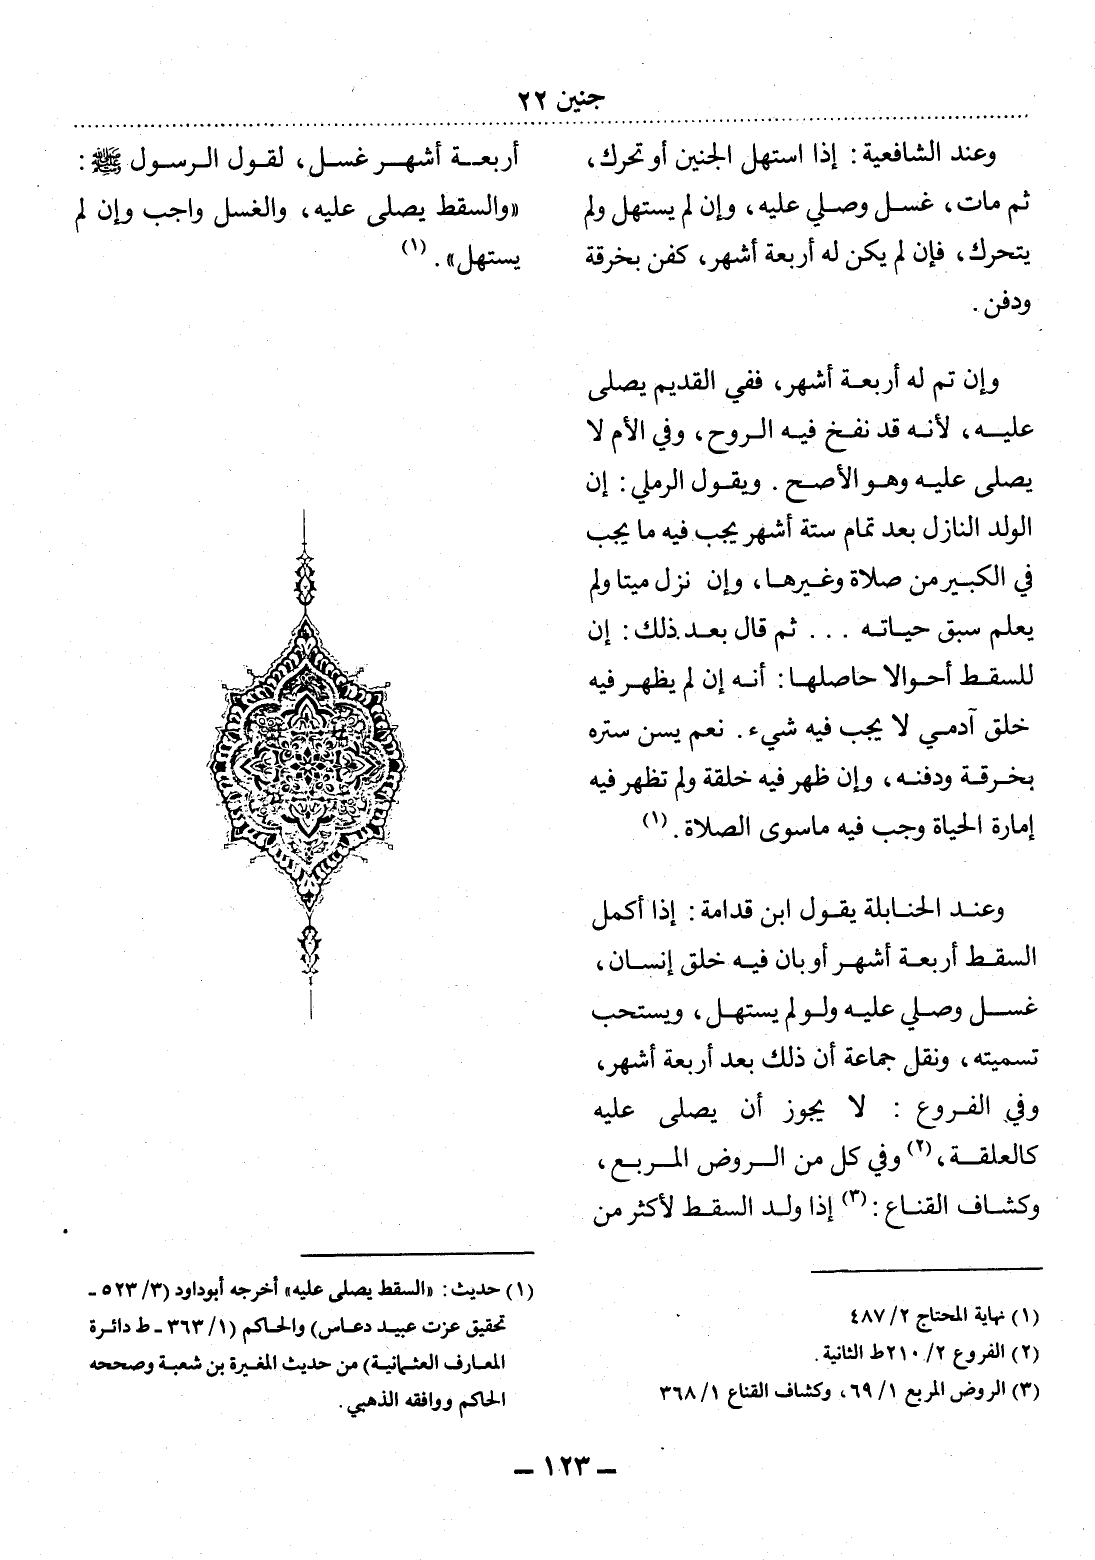 جنين ٢٢
وعند الشافعية : إذا استهل الجنين أو تحرك ،
ثم مات ، غسل وصلي عليه ، وإن لم يستهل ولم
يتحرك ، فإن لم يكن له أربعة أشهر ، كفن بخرقة
ودفن .
وإن تم له أربعة أشهر ، ففي القديم يصلى
عليه ، لأنه قد نفخ فيه الروح ، وفي الأم لا
يصلى عليه وهو الأصح . ويقول الرملي : إن
الولد النازل بعد تمام ستة أشهر يجب فيه ما يجب
في الكبير من صلاة وغيرها ، وإن نزل ميتا ولم
يعلم سبق حياته . . . ثم قال بعد ذلك : إن
للسقط أحوالا حاصلها : أنه إن لم يظهر فيه
خلق آدمي لا يجب فيه شيء . نعم يسن ستره
بخرقة ودفنه ، وإن ظهر فيه خلقة ولم تظهر فيه
إمارة الحياة وجب فيه ماسوى الصلاة . (١)
وعند الحنابلة يقول ابن قدامة : إذا أكمل
السقط أربعة أشهر أو بان فيه خلق إنسان ،
غسل وصلي عليه ولو لم يستهل ، ويستحب
تسميته ، ونقل جماعة أن ذلك بعد أربعة أشهر ،
وفي الفروع : لا يجوز أن يصلى عليه
كالعلقة ، (٢) وفي كل من الروض المربع ،
وكشاف القناع : (٣) إذا ولد السقط لأكثر من
(١) نهاية المحتاج ٢/ ٤٨٧
(٢) الفروع ٢/ ٢١٠ط الثانية .
(٣) الروض المربع ١/ ٦٩ ، وكشاف القناع ١/ ٣٦٨
أربعة أشهر غسل ، لقول الرسول ﷺ :
«والسقط يصلى عليه ، والغسل واجب وإن لم
يستهل» . (١)
(١) حديث : «السقط يصلى عليه» أخرجه أبوداود (٣/ ٥٢٣ ـ
تحقيق عزت عبيد دعاس) والحاكم (١/ ٣٦٣ ـ ط دائرة
المعارف العثمانية) من حديث المغيرة بن شعبة وصححه
الحاكم ووافقه الذهبي .
ـ ١٢٣ ـ